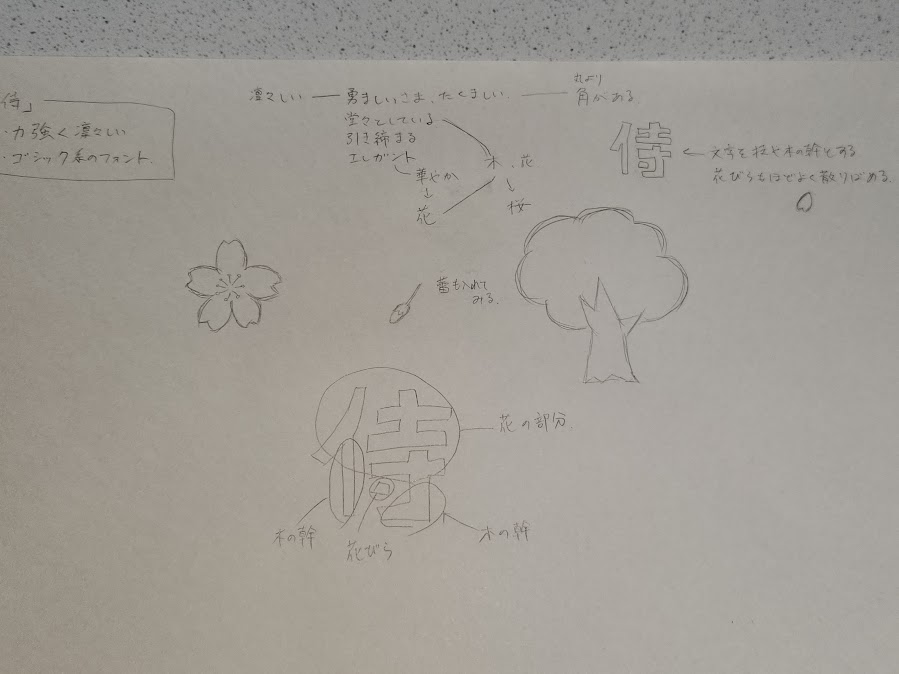 侍」
・力強く凛々しい
・ゴシック系のフォント.
凛々しい ― 勇ましいさま、たくましい. ― 角がある
丸より
堂々としている
引き締まる
エレガント
華やか
↓
花
木、花
↓
桜
侍 ← 文字を枝や木の幹とする
花びらもほどよく散りばめる.
蕾も入れて
みる.
侍
花の部分.
木の幹
花びら
木の幹